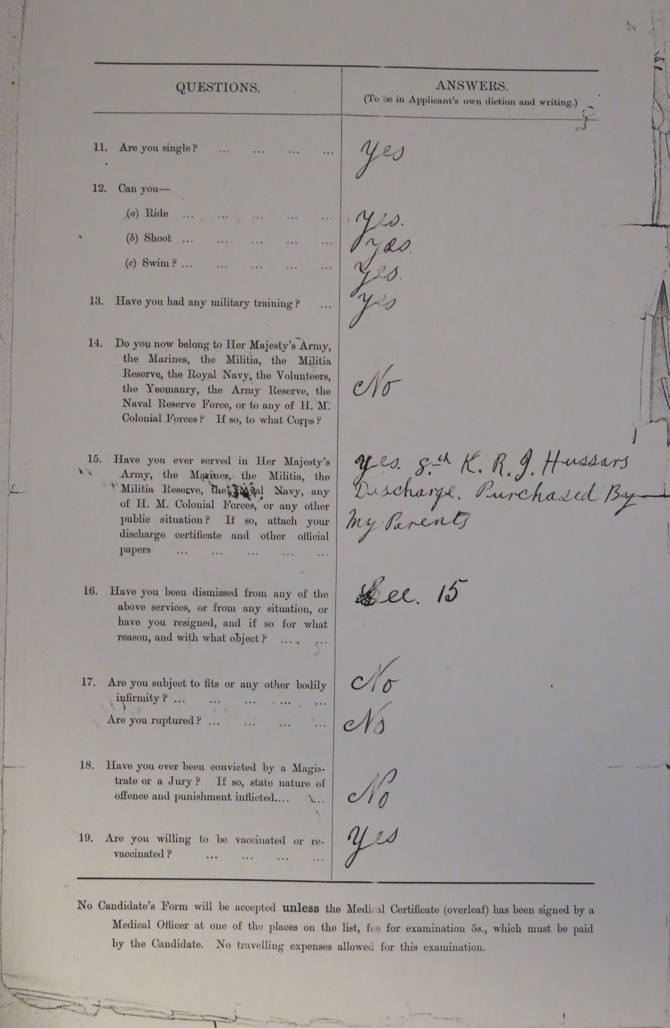 QUESTIONS.
ANSWERS.
(To be in Applicant's own diction and writing.)
11. Are you single? ... ... ... ...
Yes
12. Can you—
(a) Ride ... ... ... ... ...
Yes.
(b) Shoot ... ... ... ... ...
Yes.
(c) Swim? ... ... ... ... ...
Yes.
13. Have you had any military training? ...
Yes
14. Do you now belong to Her Majesty's Army,
the Marines, the Militia, the Militia
Reserve, the Royal Navy, the Volunteers,
the Yeomanry, the Army Reserve, the
Naval Reserve Force, or to any of H. M.
Colonial Forces? If so, to what Corps?
No
15. Have you ever served in Her Majesty's
Army, the Marines, the Militia, the
Militia Reserve, the Royal Navy, any
of H. M. Colonial Forces, or any other
public situation? If so, attach your
discharge certificate and other official
papers ... ... ... ... ...
Yes. 8th K. R. I. Hussars
Discharge. Purchased By
My Parents
16. Have you been dismissed from any of the
above services, or from any situation, or
have you resigned, and if so for what
reason, and with what object? ... ...
See. 15
17. Are you subject to fits or any other bodily
infirmity? ... ... ... ... ...
No
Are you ruptured? ... ... ... ...
No
18. Have you ever been convicted by a Magis-
trate or a Jury? If so, state nature of
offence and punishment inflicted.... ...
No
19. Are you willing to be vaccinated or re-
vaccinated? ... ... ... ...
Yes
No Candidate's Form will be accepted unless the Medical Certificate (overleaf) has been signed by a
Medical Officer at one of the places on the list, fee for examination 5s., which must be paid
by the Candidate. No travelling expenses allowed for this examination.